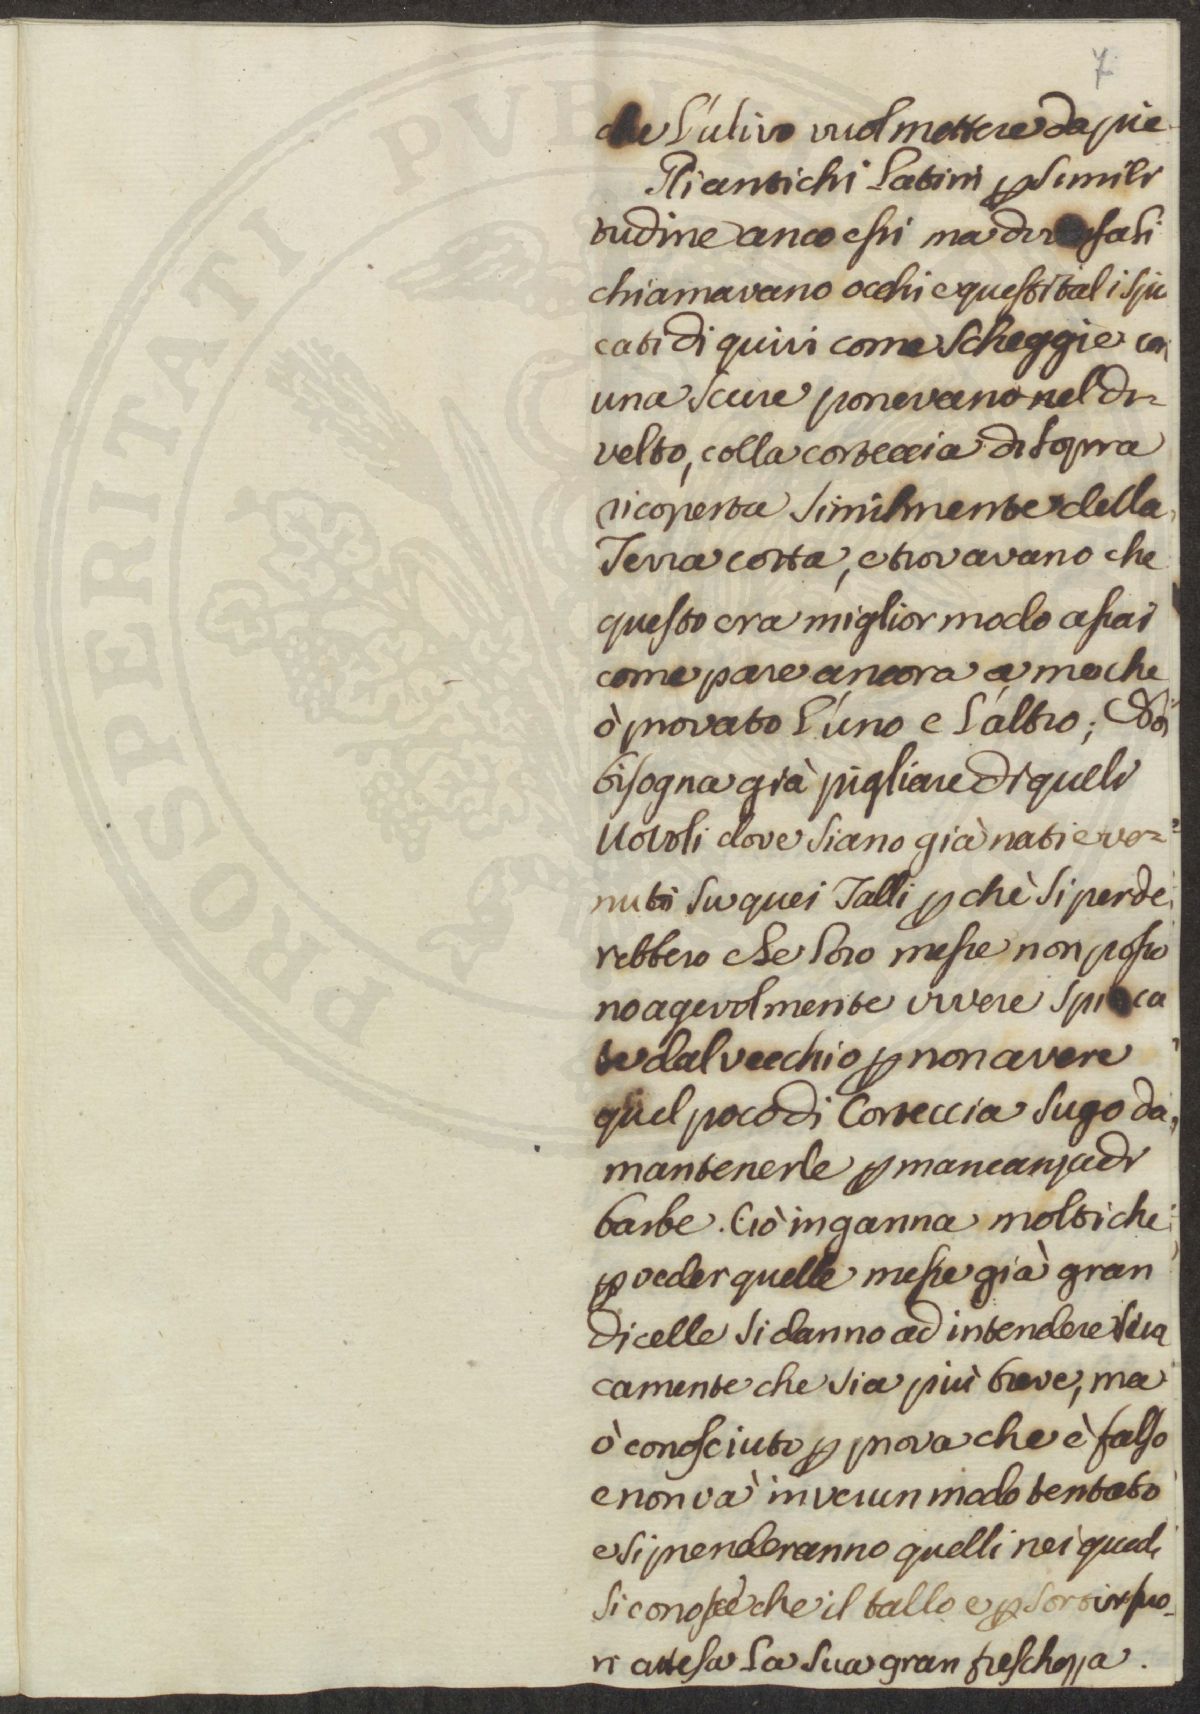 7
che l'ulivo vuol mettere da pie
Gli antichi Latini p simili
tudine anco essi ma di
chiamavano occhi e questi tali ispic
cati di quivi come scheggie con
una scure ponevano nel di=
velto, colla corteccia di sopra
ricoperta similmente della
Terra cotta, e trovavano che
questo era miglior modo assai
come pare ancora a me che
ò provato l'uno e l'altro; Nō
bisogna già pigliare di queli
Uovoli dove siano già nati e ve=
nuti su quei Talli p chè si perde
rebbero che loro messe non posso
no agevolmente vivere spicca
te dal vecchio p non avere
quel poco di Corteccia sugo da
mantenerle p mancanza di
barbe. Ciò inganna molti che
p veder quelle messe già gran
dicelle si danno ad intendere scioc
camente che sia più breve, ma
ò conosciuto p prova che è falso
e non và in verun modo tentato
e si prenderanno quelli nei quali
si conosce che il tallo e p sortir fuo
ri attesa la sua gran freschezza.
PROSPERITATI PVBL